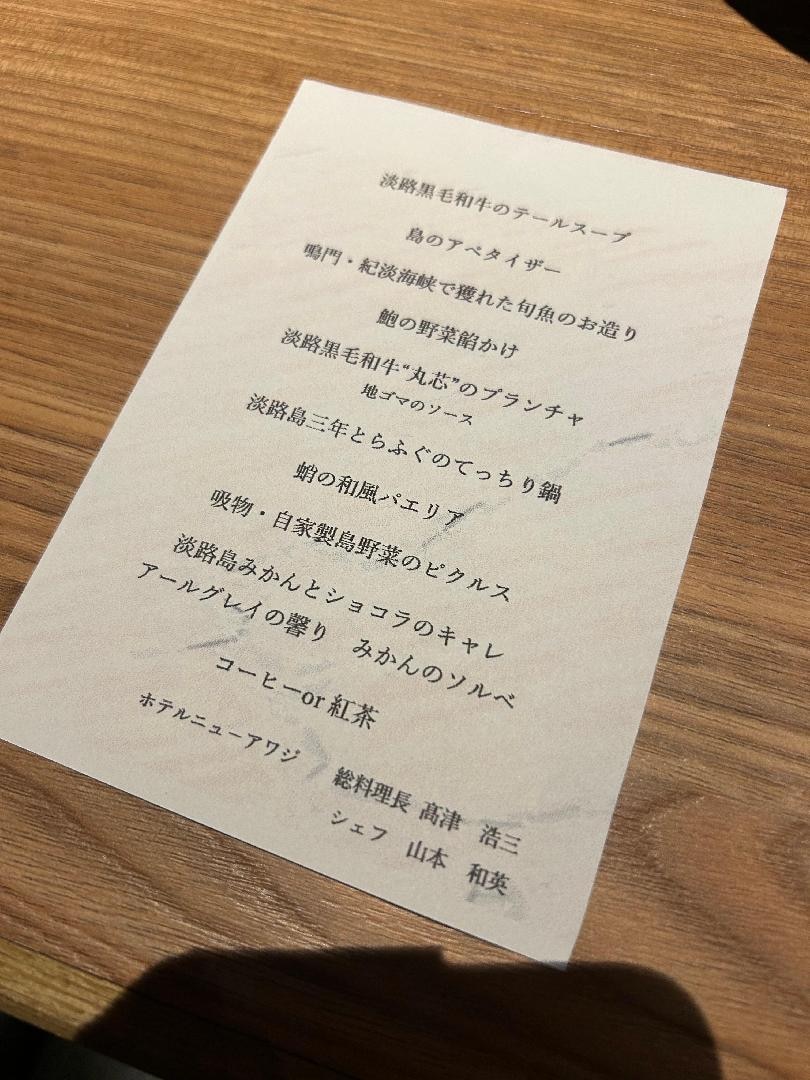 淡路黒毛和牛のテールスープ
島のアペタイザー
鳴門・紀淡海峡で獲れた旬魚のお造り
鮑の野菜餡かけ
淡路黒毛和牛“丸芯”のプランチャ
地ゴマのソース
淡路島三年とらふぐのてっちり鍋
蛸の和風パエリア
吸物・自家製島野菜のピクルス
淡路島みかんとショコラのキャレ
アールグレイの馨り　みかんのソルベ
コーヒーor 紅茶
ホテルニューアワジ
総料理長 髙津　浩三
シェフ　山本　和英